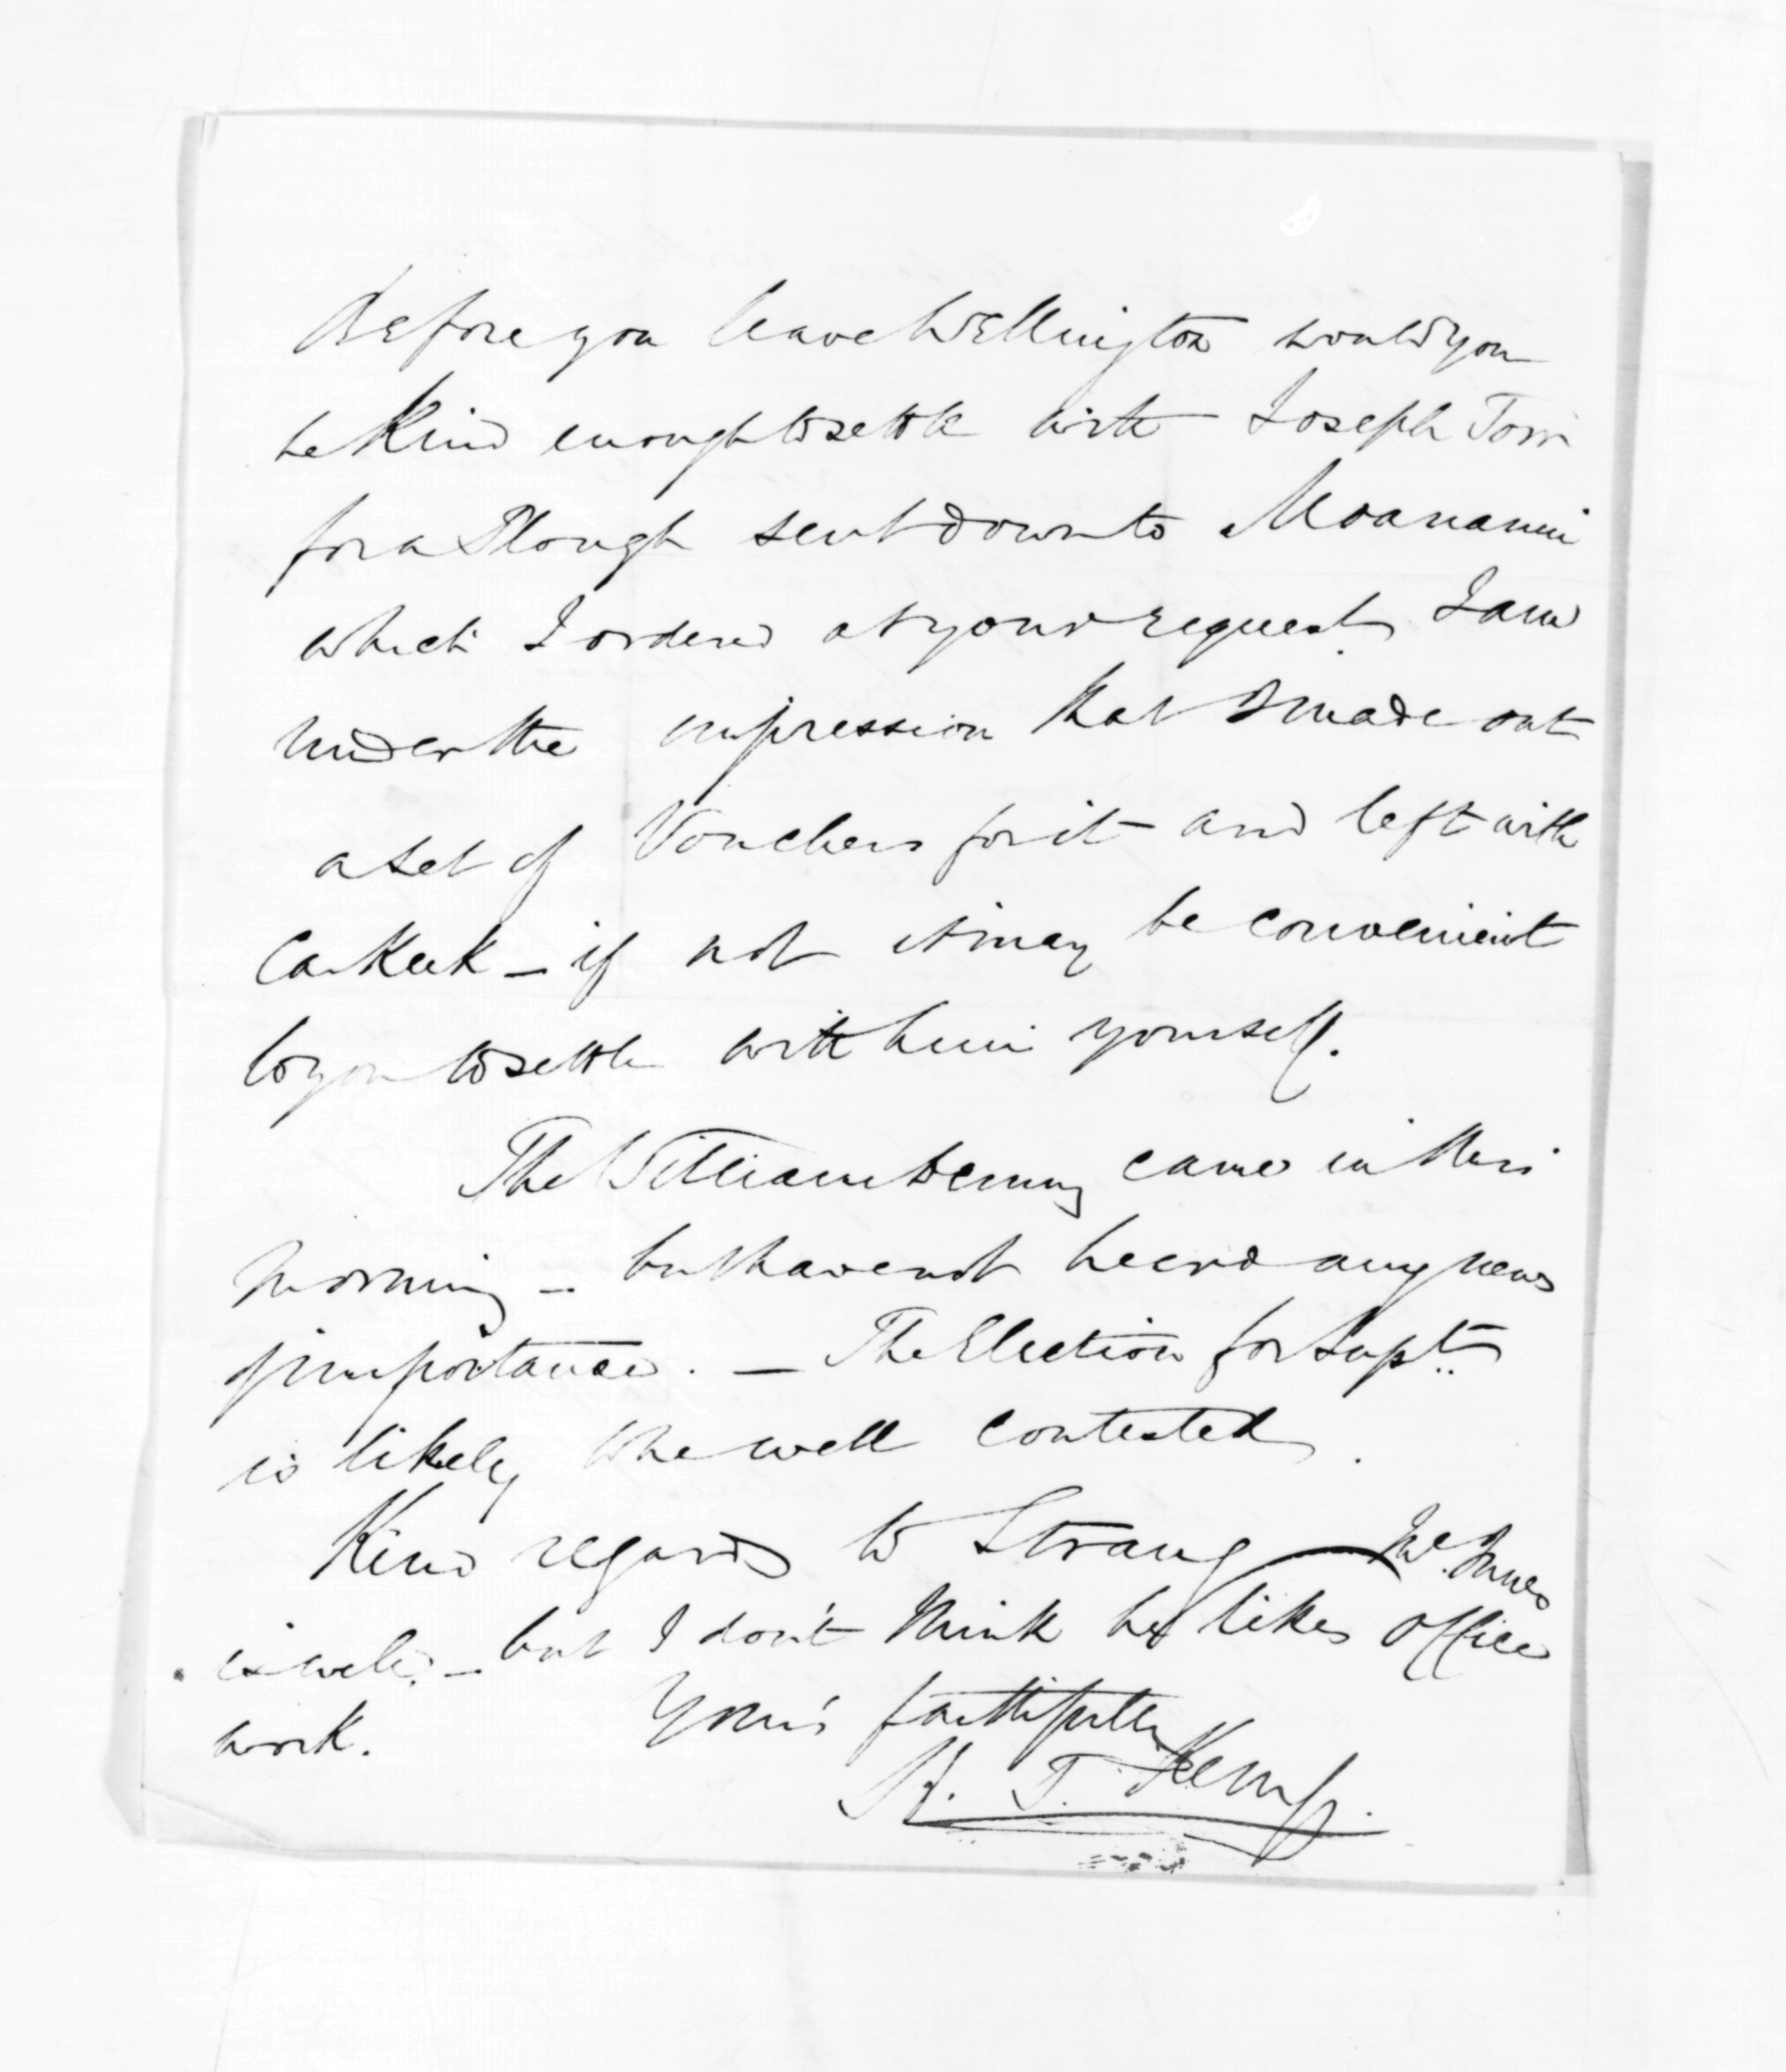 Before you leave Wellington would you
be kind enough to settle with Joseph Torr
for a Plough sent down to Moananui
which I ordered at your request. I am
under the impression that I made out
a set of Vouchers for it - and left with
Carkeek - if not it may be convenient
to you to settle with him yourself.
The William Denny came in this
morning - but have not heard any news
of importance. - The Election for Supt.
is likely to be well contested.
Kind regards to Strang
is well - but I don't think he likes office
work. Yours faithfully
H. T. Kemp.